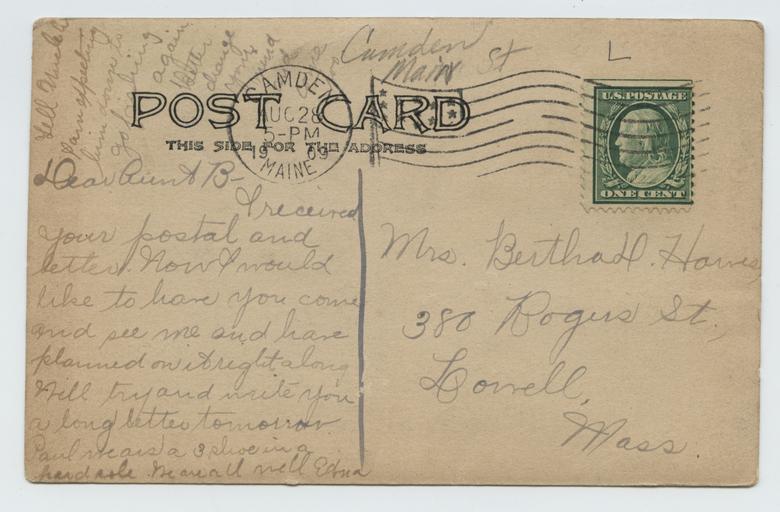 Camden
Main St
L
Tell
I am expecting
him down to
go fishing
again.
Better
change
your
CAMDEN
AUG 28
5-PM
1909
MAINE
POST CARD
THIS SIDE FOR THE ADDRESS
U.S. POSTAGE
ONE CENT
Dear Aunt B-
I received
your postal and
letter. Now I would
like to have you come
and see me and have
planned on it right along
Will try and write you
a long letter tomorrow
Paul wears a 3 shoe in a
hard sole. We are all well Edna
Mrs. Bertha H. Hawes,
380 Rogers St.,
Lowell,
Mass.